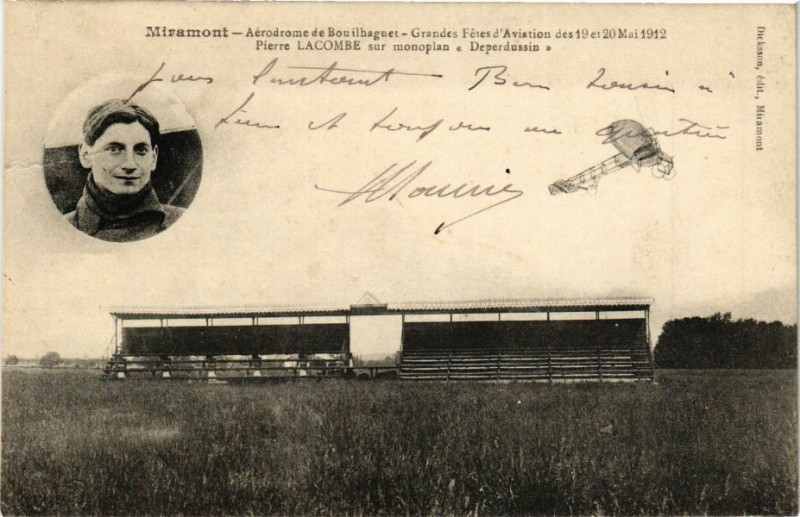 Miramont — Aérodrome de Bouilhaguet - Grandes Fêtes d'Aviation des 19 et 20 Mai 1912
Pierre LACOMBE sur monoplan « Deperdussin »
Dicksson, édit., Miramont
pour l'instant Bon cousin
et toujours au quartier